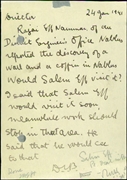 Director
24 Jan 1941
Ragai Eff Nammar of
District Engineer's Office Nablus
reported the discovery of a
wall and a coffin in Nablus
Would Salem Eff visit?
I said that Salem Eff
would visit it soon,
meanwhile work should
stop in that area. He
said that he would see
to that